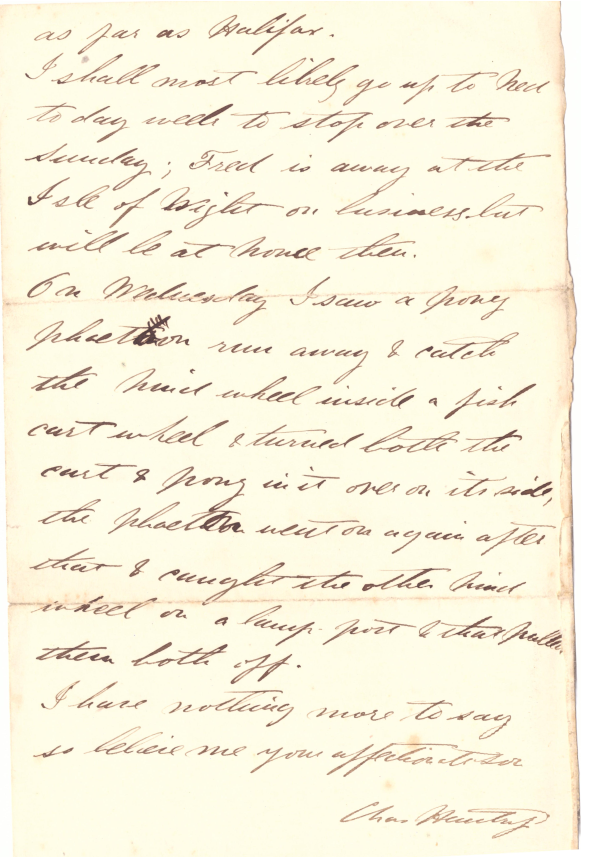 as far as Halifax.
I shall most likely go up to Ned
to day week to stop over the
Sunday; Fred is away at the
Isle of Wight on business but
will be at home then.
On Wednesday I saw a pony
phaeton run away & catch
the hind wheel inside a fish
cart wheel & turned both the
cart & pony in it over on its side,
the phaeton went on again after
that & caught the other hind
wheel on a lamp-post & that
them both off.
I have nothing more to say
so believe me your affectionate son
Chas